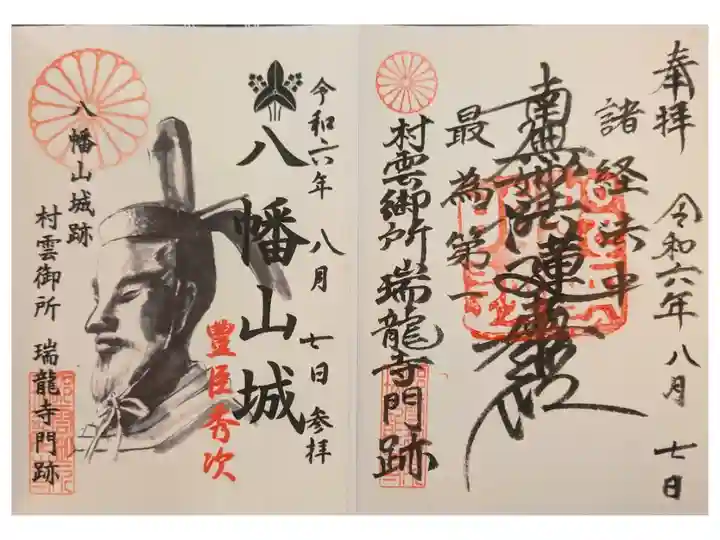 奉拝
令和六年 八月 七日
諸経法中
南無妙法蓮華経
最為第一
村雲御所 瑞龍寺門跡
令和六年 八月 七日 参拝
八幡山城
豊臣秀次
八幡山城跡
村雲御所 瑞龍寺門跡